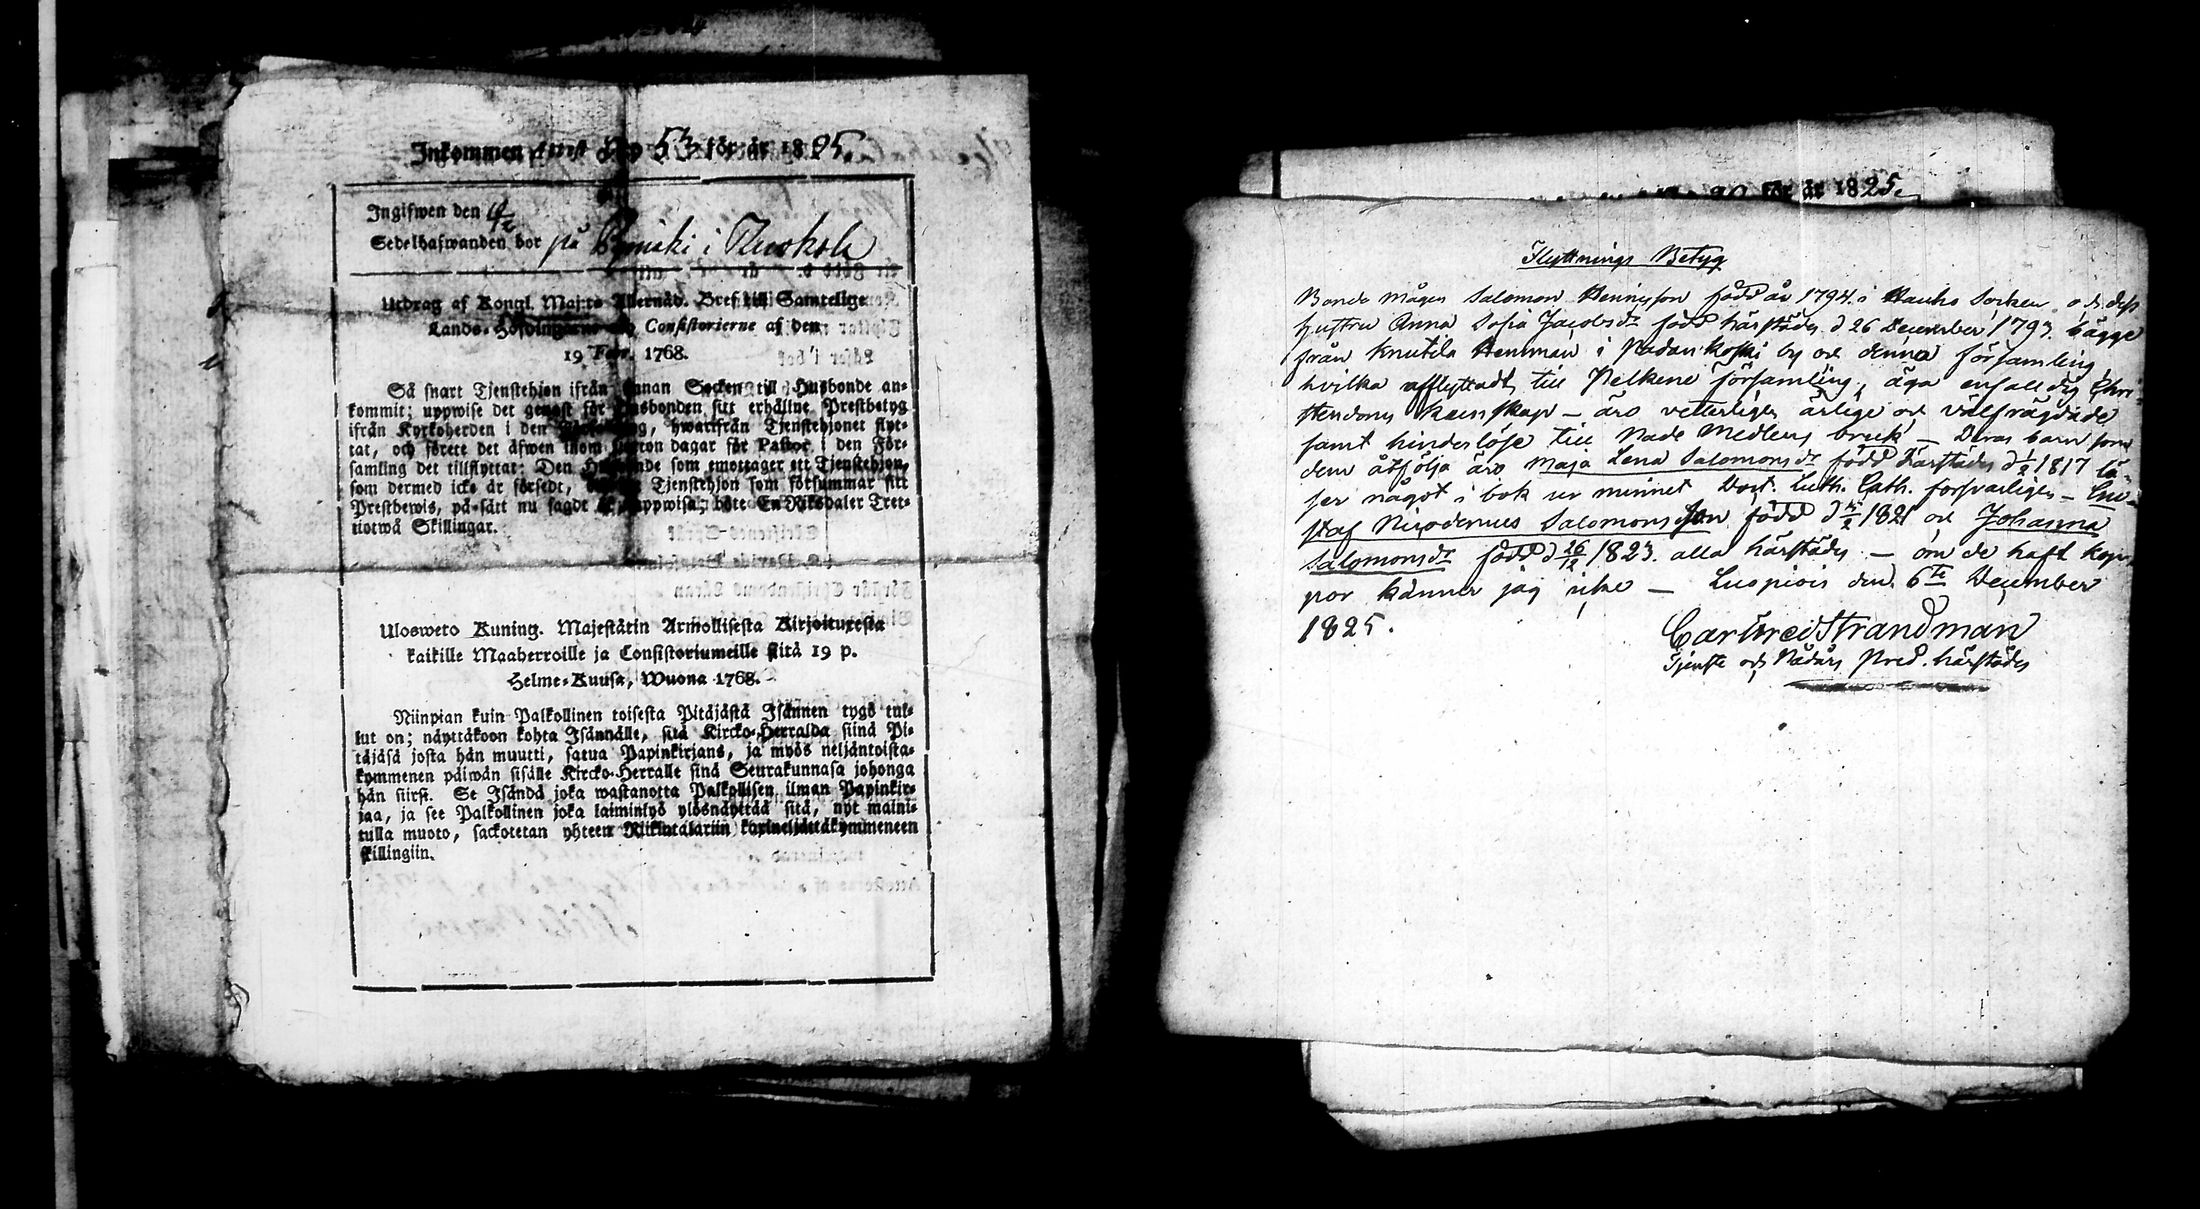 Inkommen sub No 53 för år 1825.
Ingifwen den 4/2
Sedelhafwanden bor på i Kuokola
Utdrag af Kongl. Maj:ts Allernåd. Bref till Samtelige
Lands-Höfdingarne och Consistorierne af den
19 Febr. 1768.
Så snart Tjenstehjon ifrån annan Socken till Husbonde an-
kommit; uppwise det genast för Husbonden sitt erhållne Prestbetyg
ifrån Kyrkoherden i den Församling, hwarifrån Tjenstehjonet flyt-
tat, och förete det äfwen inom fjorton dagar för Pastor i den För-
samling det tillflyttat: Den Husbonde som emottager ett Tjenstehjon,
som dermed icke är försedt, Tjenstehjon som försummar sitt
Prestbewis, på-sätt nu sagdt är, uppwisa; böte En Riksdaler Tret-
tiotwå Skillingar.
Ulosweto Kuning. Majestätin Armollisesta Kirjoituxesta
kaikille Maaherroille ja Consistoriumeille sitä 19 p.
Helme-Kuusa, Wuona 1768.
Niinpian kuin Palkollinen toisesta Pitäjästä Isännen tygö tul-
lut on; näyttäkoon kohta Isännälle, sitä Kircko-Herralda siinä Pi-
täjäsä josta hän muutti, saatua Papinkirjans, ja myös neljäntoista-
kymmenen päiwän sisälle Kircko-Herralle siinä Seurakunnasa johonga
hän siirsi. Se Isändä joka wastanotta Palkollisen ilman Papinkir-
jaa, ja see Palkollinen joka laiminlyö ylösnäyttää sitä, nyt maini-
tulla muoto, sackotetan yhteen Riikintalariin kaxineljättäkymmeneen
skillingiin.
för år 1825.
Flyttnings Betyg
Bonde Mågen Salomon Henricsson född år 1794 i Hauho Socken och dess
hustru Anna Sofia Jacobsdr född härstädes d 26 December 1793 bägge
från Knutila Hemman i Padankoski by och denna församling
hvilka afflyttadt till Pelkene församling, äga enfalldig Chri-
stendoms kunskap – äro vetterligen ärlige och välfrägdade
samt hinderlöse till Nade Medlens bruk – Deras barn som
dem åtfölja äro Maja Lena Salomonsdr född härstädes d 1/2 1817 lä-
ser något i bok ur minnet Luth. Cath. försvarligen – Gu-
staf Nicodemus Salomonsson född 1821 och Johanna
Salomonsdr född d 26/12 1823. alla härstädes – om de haft kop-
por känner jag icke – Luopiois den 6te December
1825.
Strandman
Tjenste och Nådårs Pred. härstädes